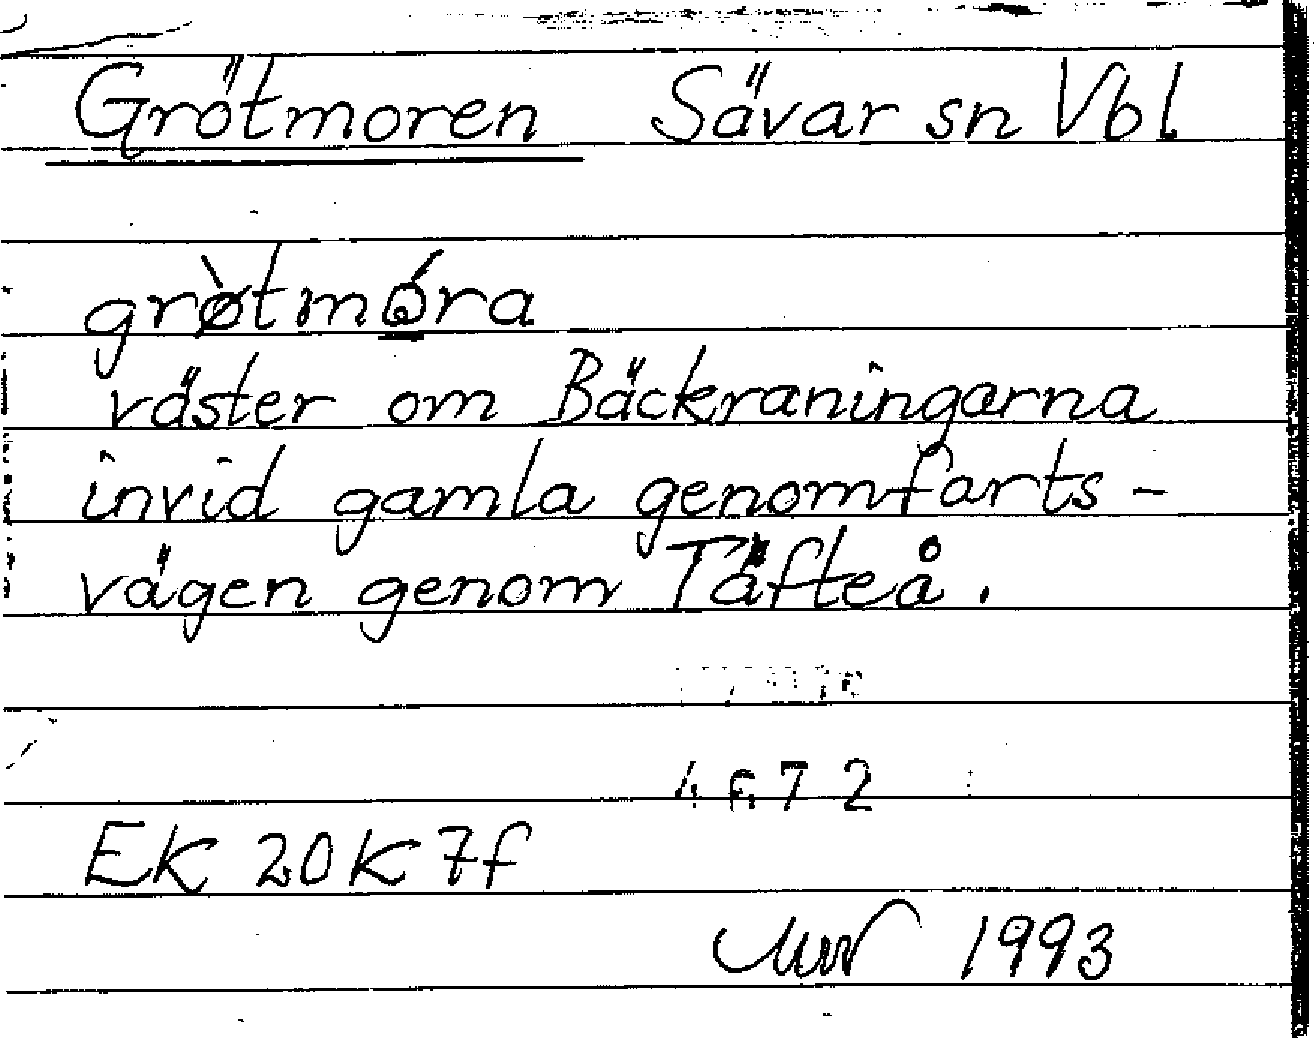 Grötmoren Sävar sn Vbl
grø̀tmóra
väster om Bäckraningarna
invid gamla genomfarts-
vägen genom Täfteå.
4672
EK 20K 7f
1993